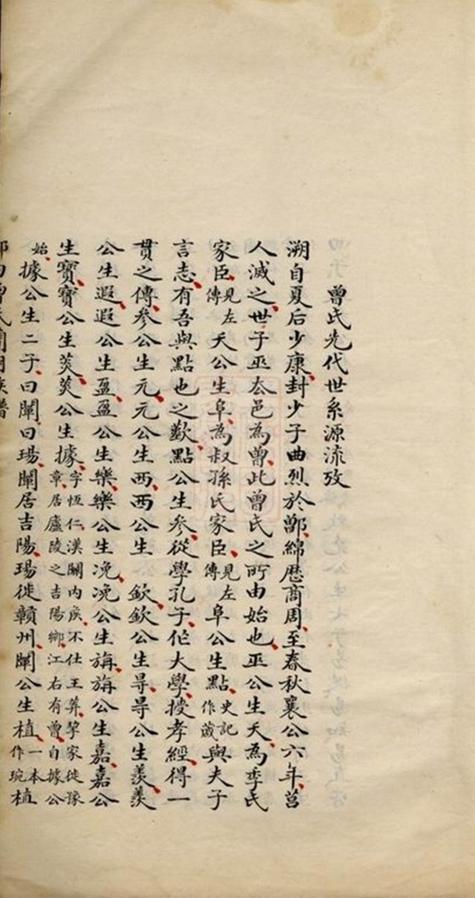 曾氏先代世系源流攷
溯自夏后少康封少子曲烈於鄫綿歴商周至春秋襄公六年莒
人滅之世子巫去邑為曾此曾氏之所由始也巫公生夭為季氏
家臣見左傳夭公生阜為叔孫氏家臣見左傳阜公生點史記作蒧與夫子
言志有吾與點也之歎點公生參從學孔子作大學授孝經得一
貫之傳參公生元元公生西西公生欽欽公生尋尋公生羨羨
公生遐遐公生盈盈公生樂樂公生浼浼公生旃旃公生嘉嘉公
生寶寶公生炎炎公生據字恆仁漢關內侯不仕王莽挈家徙豫章居廬陵之吉陽鄉江右有曾自據公
始據公生二子曰闡曰瑒闡居吉陽瑒徙贛州闡公生植一本作琬植